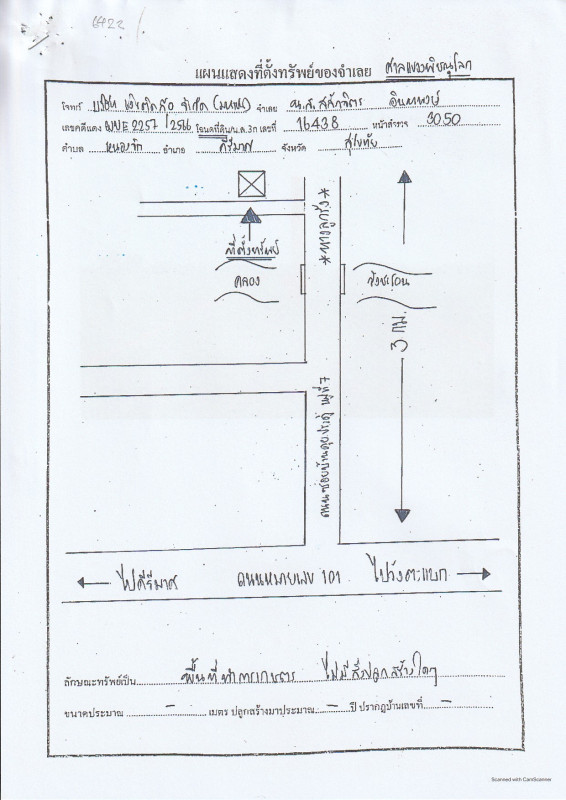 6422
แผนแสดงที่ตั้งทรัพย์ของจำเลย ศาลแขวงพิษณุโลก
โจทก์ บริษัท จำกัด (มหาชน) จำเลย น.ส.
เลขคดีแดง 2257/2566 โฉนดที่ดิน/น.ส.3ก เลขที่ 16438 หน้าสำรวจ 3050
ตำบล หนองจิก อำเภอ คีรีมาศ จังหวัด สุโขทัย
*ทางลูกรัง*
ที่ตั้งทรัพย์
คลอง
3 กม.
หมู่ที่ 7
ไปคีรีมาศ ถนนหมายเลข 101 ไปวังตะแบก
ลักษณะทรัพย์เป็น พื้นที่ทำการเกษตร ไม่มีสิ่งปลูกสร้างใดๆ
ขนาดประมาณ - เมตร ปลูกสร้างมาประมาณ - ปี ปรากฏบ้านเลขที่ -
Scanned with CamScanner